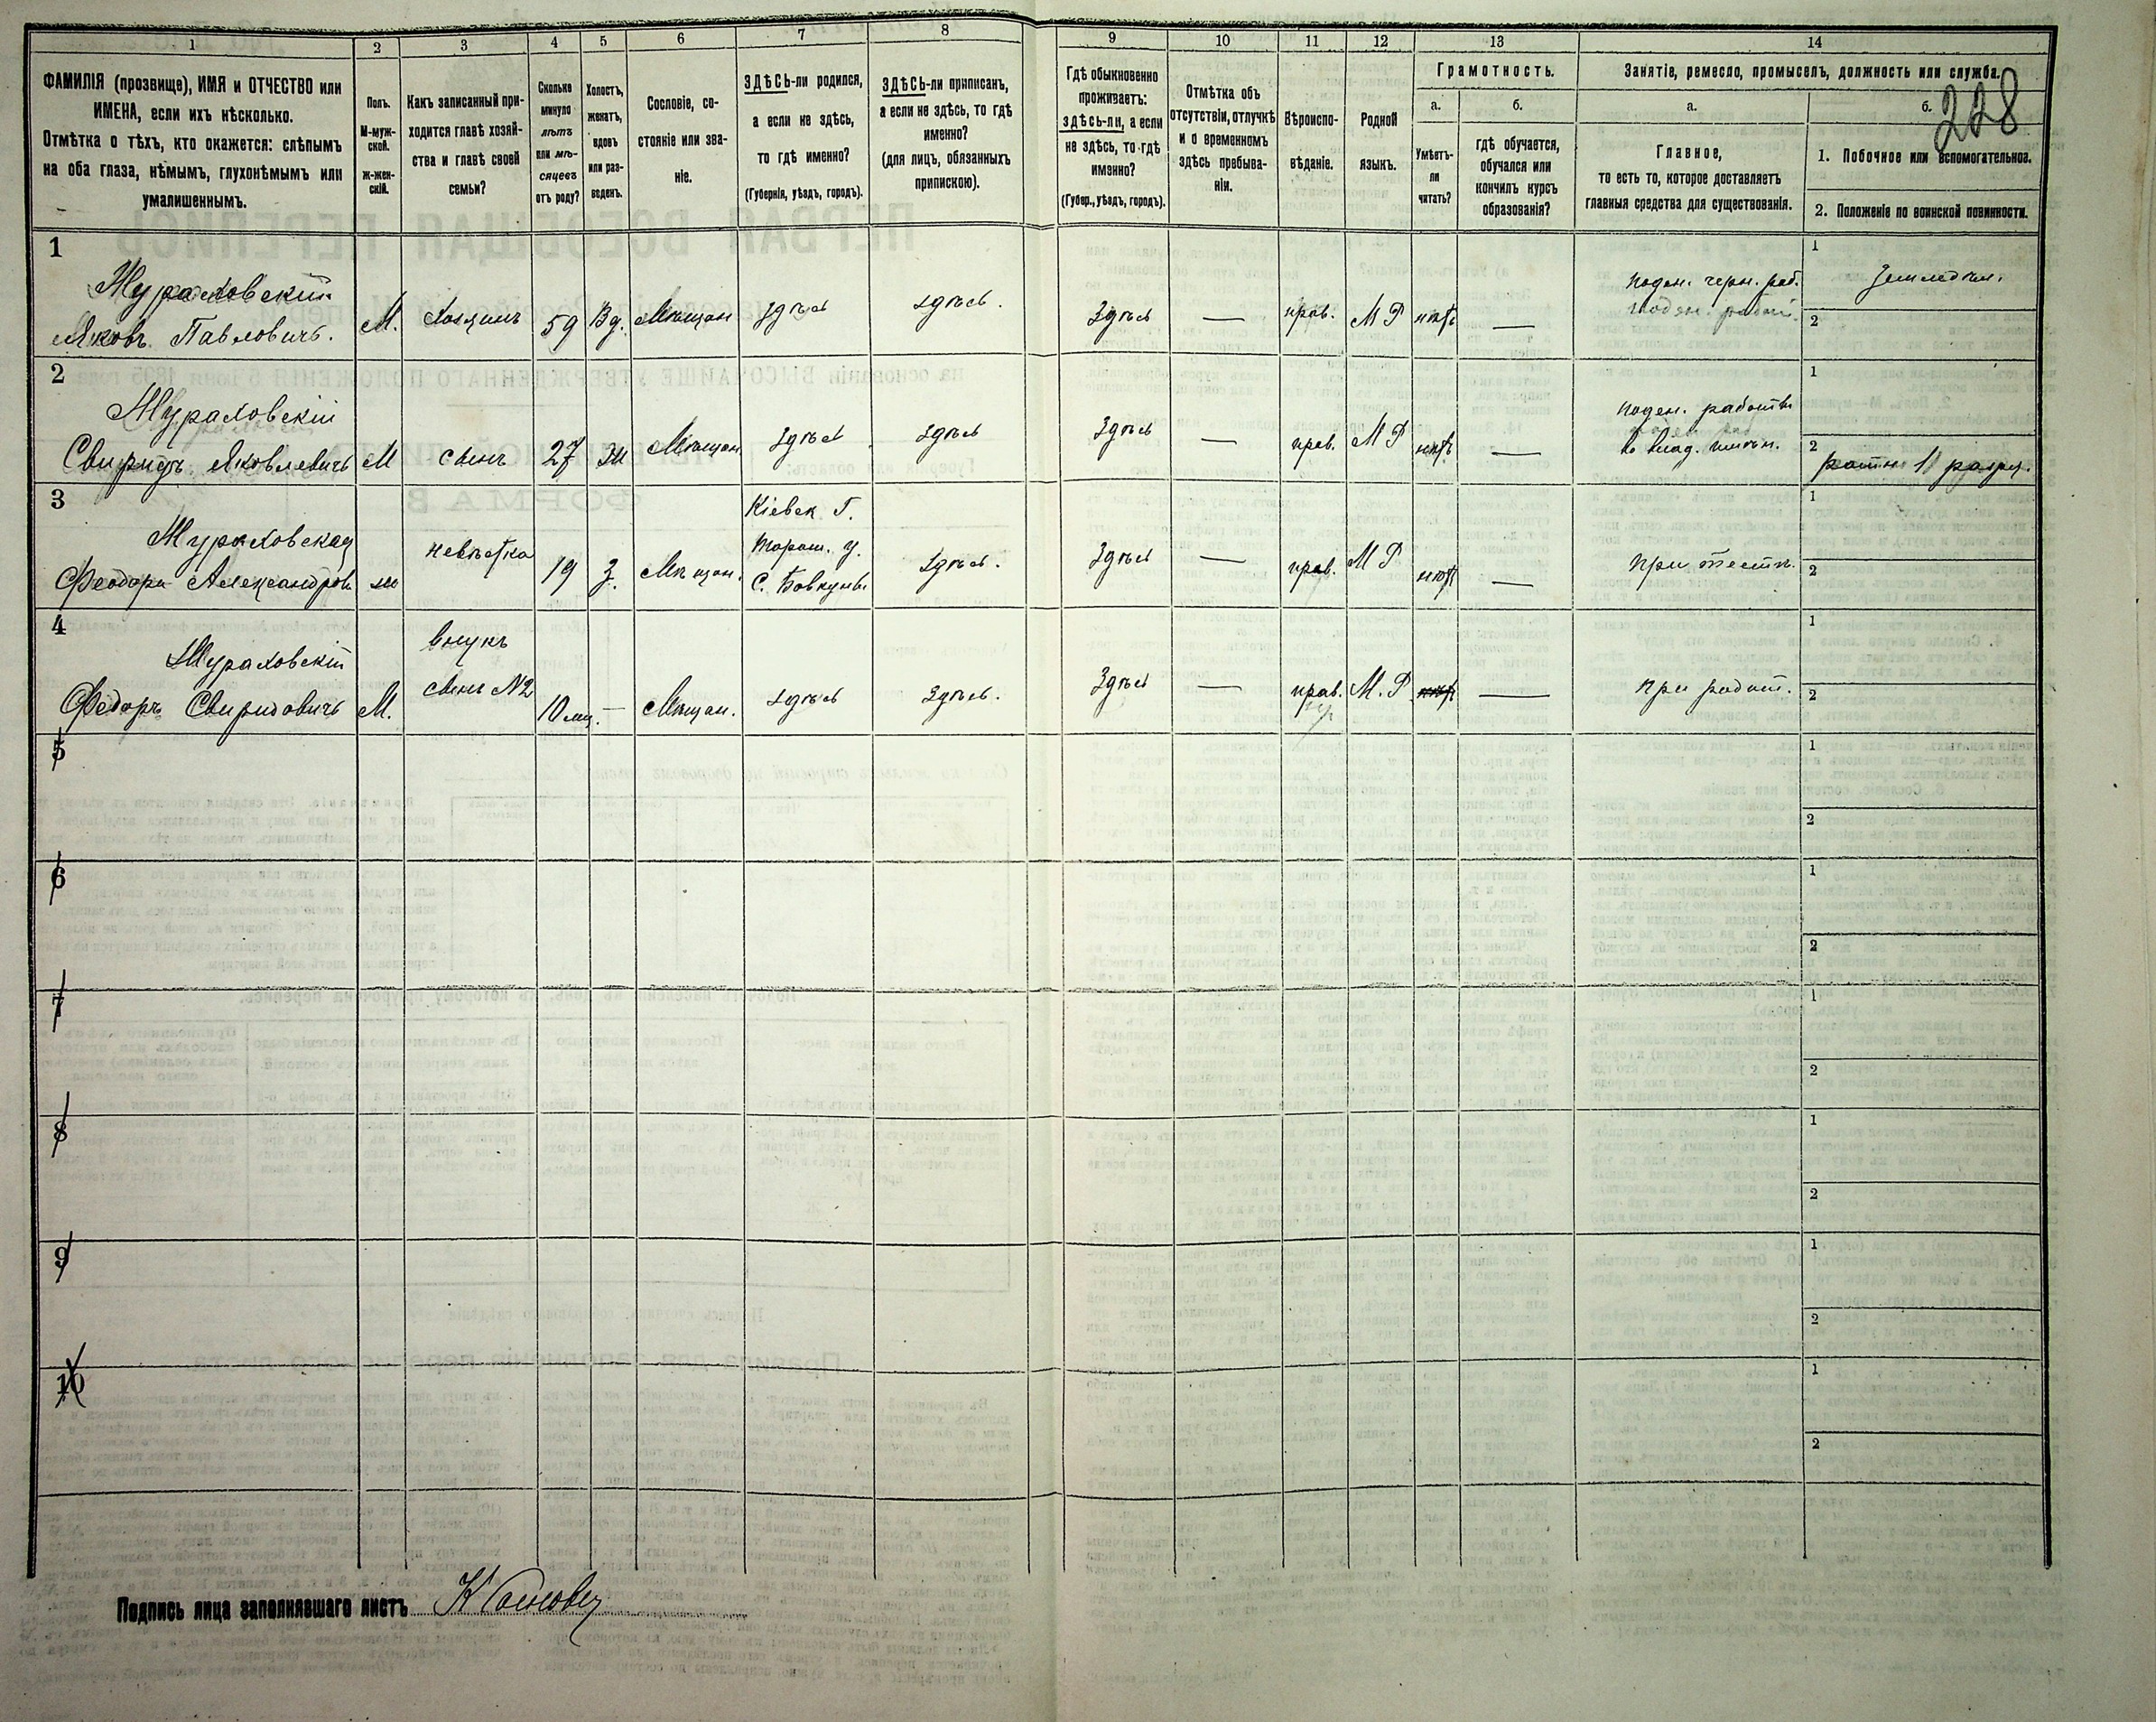 228
1 2 3 4 5 6 7 8 9 10 11 12 13 14
ФАМИЛІЯ (прозвище), ИМЯ и ОТЧЕСТВО или
ИМЕНА, если ихъ нѣсколько.
Отмѣтка о тѣхъ, кто окажется: слѣпымъ
на оба глаза, нѣмымъ, глухонѣмымъ или
умалишеннымъ.
Полъ.
М-муж-
ской.
ж-жен-
скій.
Какъ записанный при-
ходится главѣ хозяй-
ства и главѣ своей
семьи?
Сколько
минуло
лѣтъ
или мѣ-
сяцевъ
отъ роду?
Холостъ,
женатъ,
вдовъ
или раз-
веденъ.
Сословіе, со-
стояніе или зва-
ніе.
ЗДѢСЬ-ли родился,
а если не здѣсь,
то гдѣ именно?
(Губернія, уѣздъ, городъ).
ЗДѢСЬ-ли приписанъ,
а если не здѣсь, то гдѣ
именно?
(для лицъ, обязанныхъ
припискою).
Гдѣ обыкновенно
проживаетъ:
здѣсь-ли, а если
не здѣсь, то гдѣ
именно?
(Губер., уѣздъ, городъ).
Отмѣтка объ
отсутствіи, отлучкѣ
и о временномъ
здѣсь пребыва-
ніи.
Вѣроиспо-
вѣданіе.
Родной
языкъ.
Грамотность.
а.
Умѣетъ-
ли
читать?
б.
гдѣ обучается,
обучался или
кончилъ курсъ
образованія?
Занятіе, ремесло, промыселъ, должность или служба.
а.
Главное,
то есть то, которое доставляетъ
главныя средства для существованія.
б.
1. Побочное или вспомогательное.
2. Положеніе по воинской повинности.
1
Мураховскій
Яковъ Павловичъ. М. Хозяинъ 59 Вд. Мѣщан здѣсь здѣсь. Здѣсь — прав. М Р нѣтъ —
поден. черн. раб.
1 Земледѣл.
2
2
Мураховскій
Свиридъ Яковлевичъ М сынъ 27 Ж Мѣщан здѣсь здѣсь Здѣсь — прав. М Р нѣтъ —
поден. работн.
1
2 ратн. II разря.
3
Мураховская
Феодора Александров ж невѣстка 19 З. Мѣщан.
Кіевск Г.
Тараш. у.
С. Бовкунъ
здѣсь. Здѣсь — прав. М Р нѣтъ — при тестѣ.
1
2
4
Мураховскій
Федоръ Свиридовичъ М.
внукъ
сынъ №2
10 мц. — Мѣщан. здѣсь здѣсь. Здѣсь — прав. М. Р нѣтъ — при родит.
1
2
5
1
2
6
1
2
7
1
2
8
1
2
9
1
2
10
1
2
Подпись лица заполнявшаго листъ